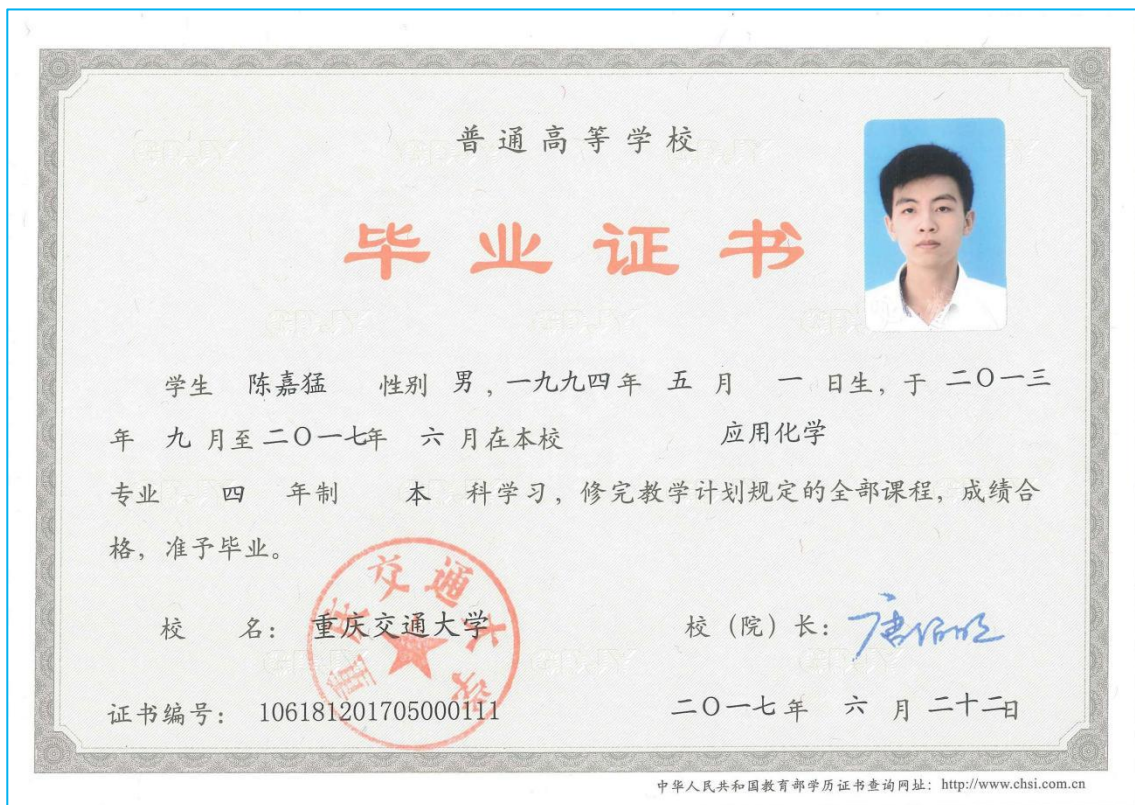 普通高等学校
毕业证书
学生 陈嘉猛 性别 男，一九九四年 五 月 一 日生，于 二〇一三
年 九 月至二〇一七年 六 月在本校 应用化学
专业 四 年制 本 科学习，修完教学计划规定的全部课程，成绩合
格，准予毕业。
校 名：重庆交通大学 校（院）长：唐伯明
重庆交通大学
证书编号：106181201705000111 二〇一七年 六 月 二十二日
中华人民共和国教育部学历证书查询网址：http://www.chsi.com.cn